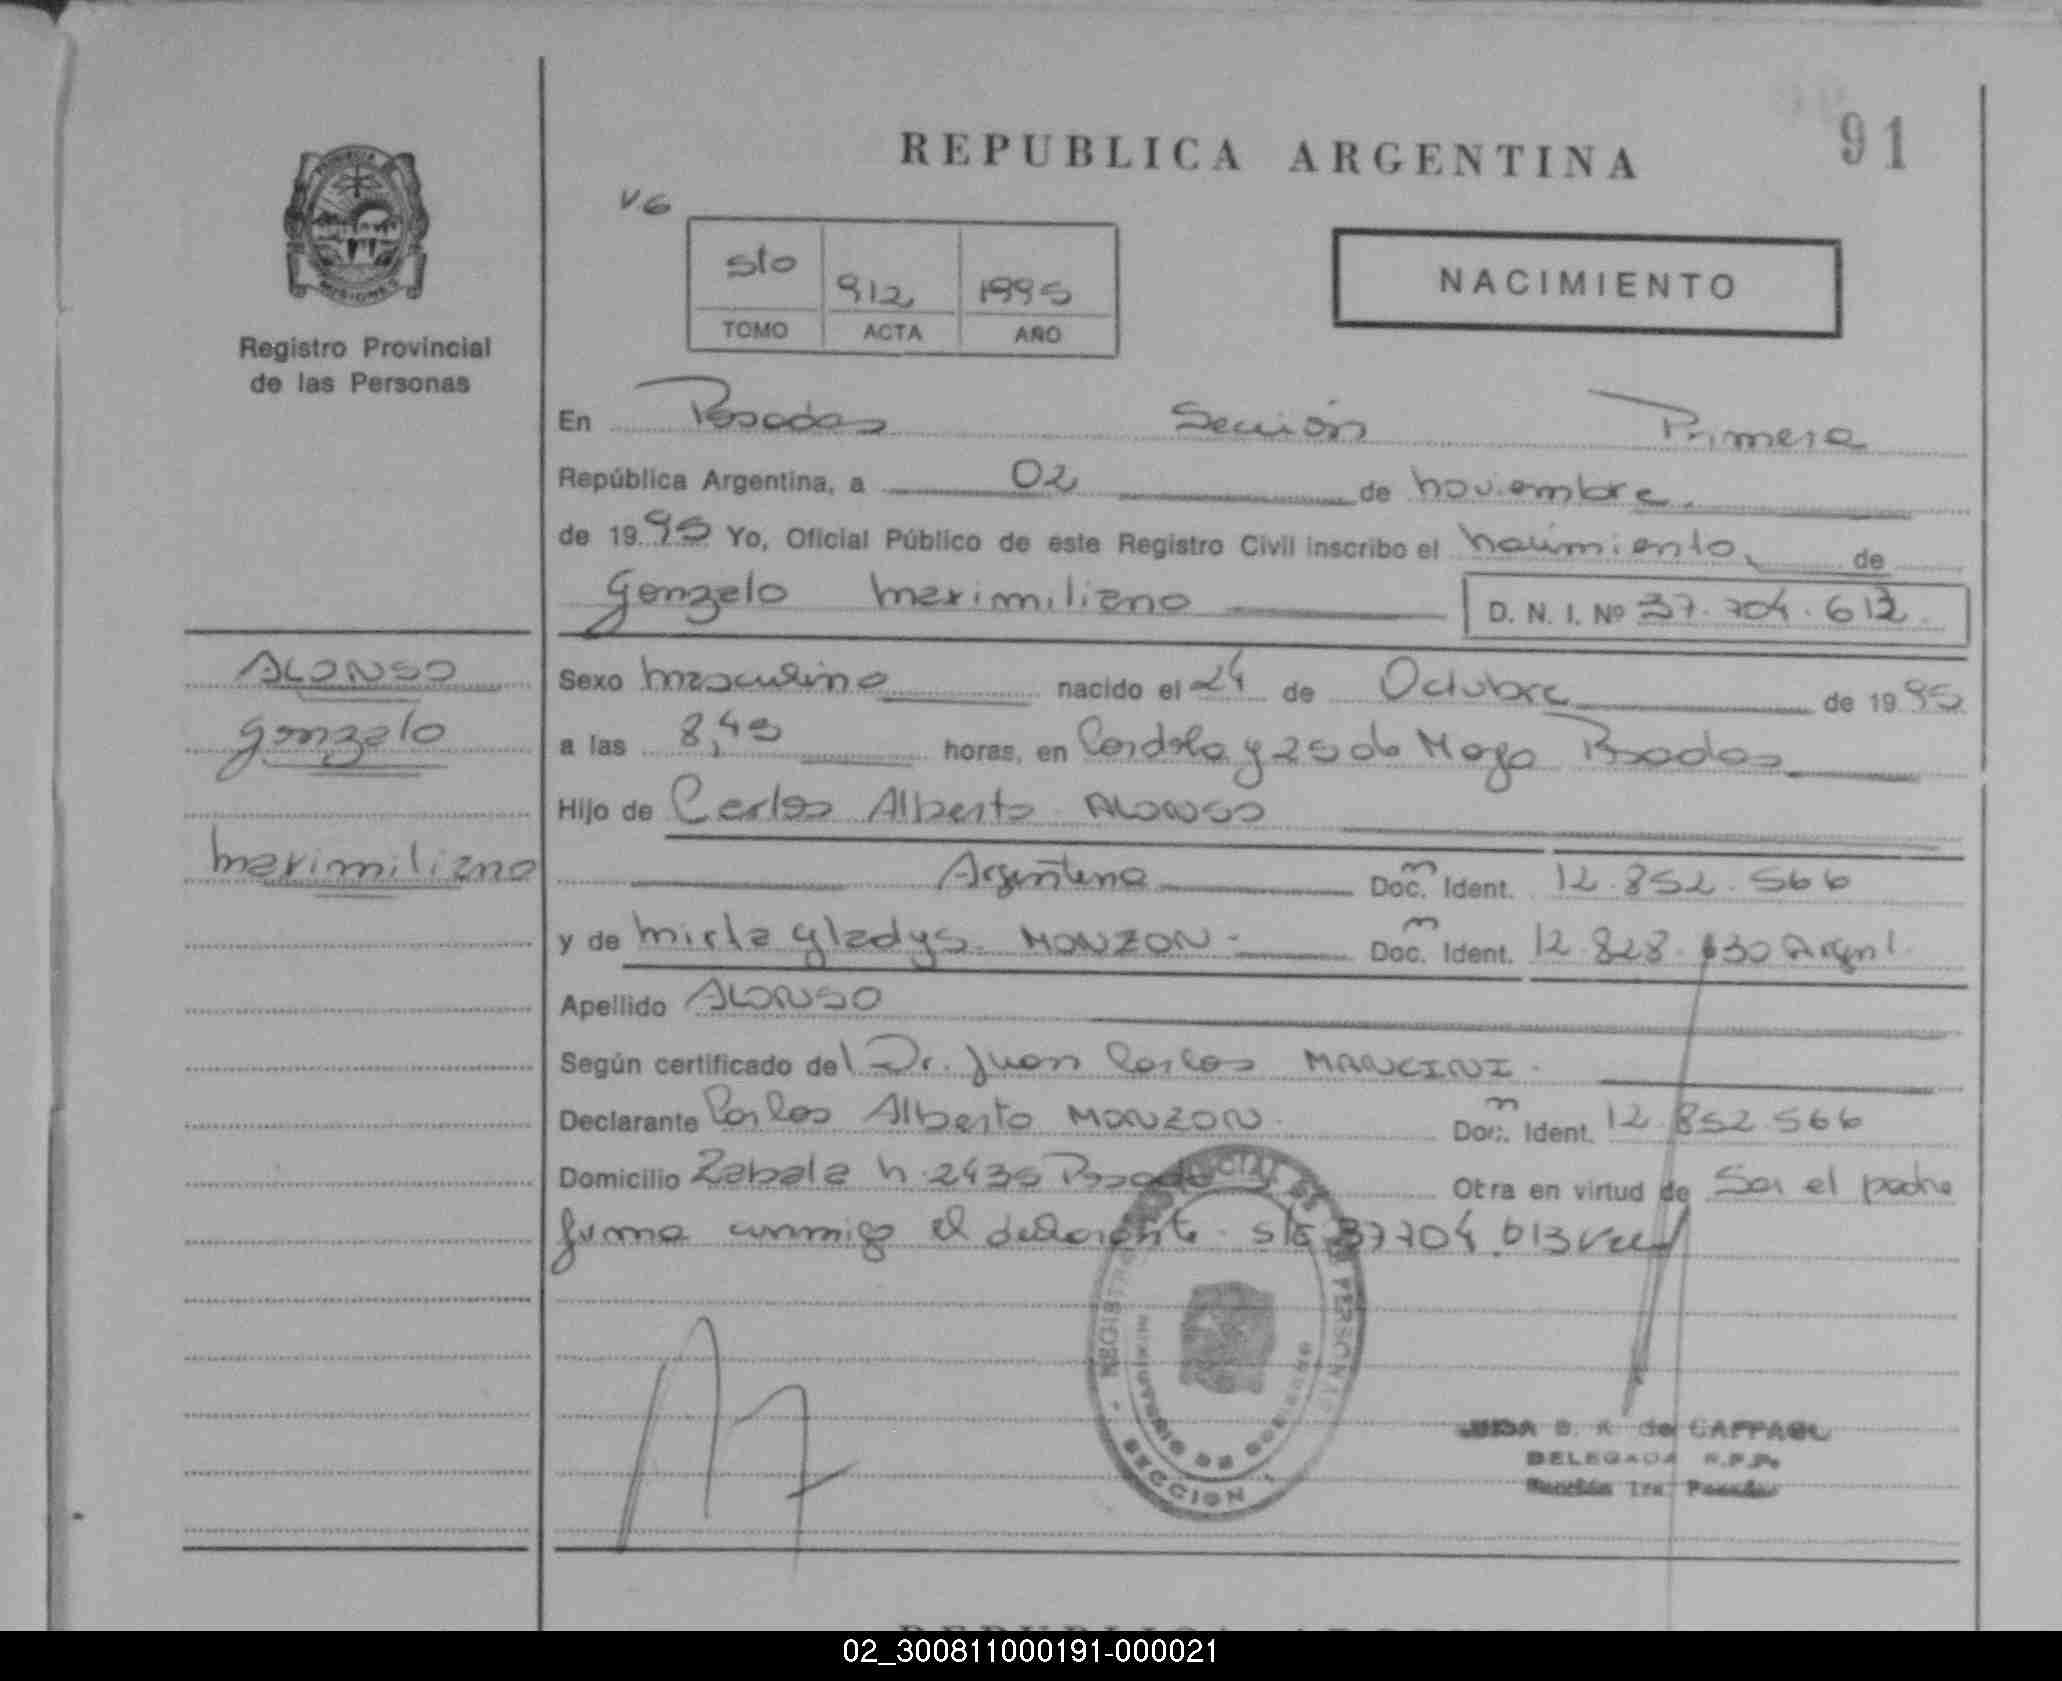 REPUBLICA ARGENTINA
91
V6
5to 912 1995
TOMO ACTA AÑO
NACIMIENTO
MISIONES
Registro Provincial
de las Personas
En Posadas Sección Primera
República Argentina, a 02 de noviembre
de 1995 Yo, Oficial Público de este Registro Civil inscribo el nacimiento de
Gonzalo Maximiliano D. N. I. Nº 37.704.613
ALONSO
Gonzalo
Maximiliano
Sexo masculino nacido el 24 de Octubre de 1995
a las 8,45 horas, en Cordoba y 25 de Mayo Posadas
Hijo de Carlos Alberto ALONSO
Argentina Doc. Ident. 12.852.566
y de Mirta Gladys MONZON.- Doc. Ident. 12.828.630 Argnt.
Apellido ALONSO
Según certificado del Dr. Juan Carlos MANCINI.
Declarante Carlos Alberto MONZON. Doc. Ident. 12.852.566
Domicilio Zabala n. 2435 Posadas Otra en virtud de Ser el padre
firma conmigo el declarante. s/r 37704.613 Vale
REGISTRO PROVINCIAL DE LAS PERSONAS - SECCION 1
MINISTERIO DE GOBIERNO
B. K. de
DELEGADA R.P.P.
Sección 1ra. Posadas
02_300811000191-000021